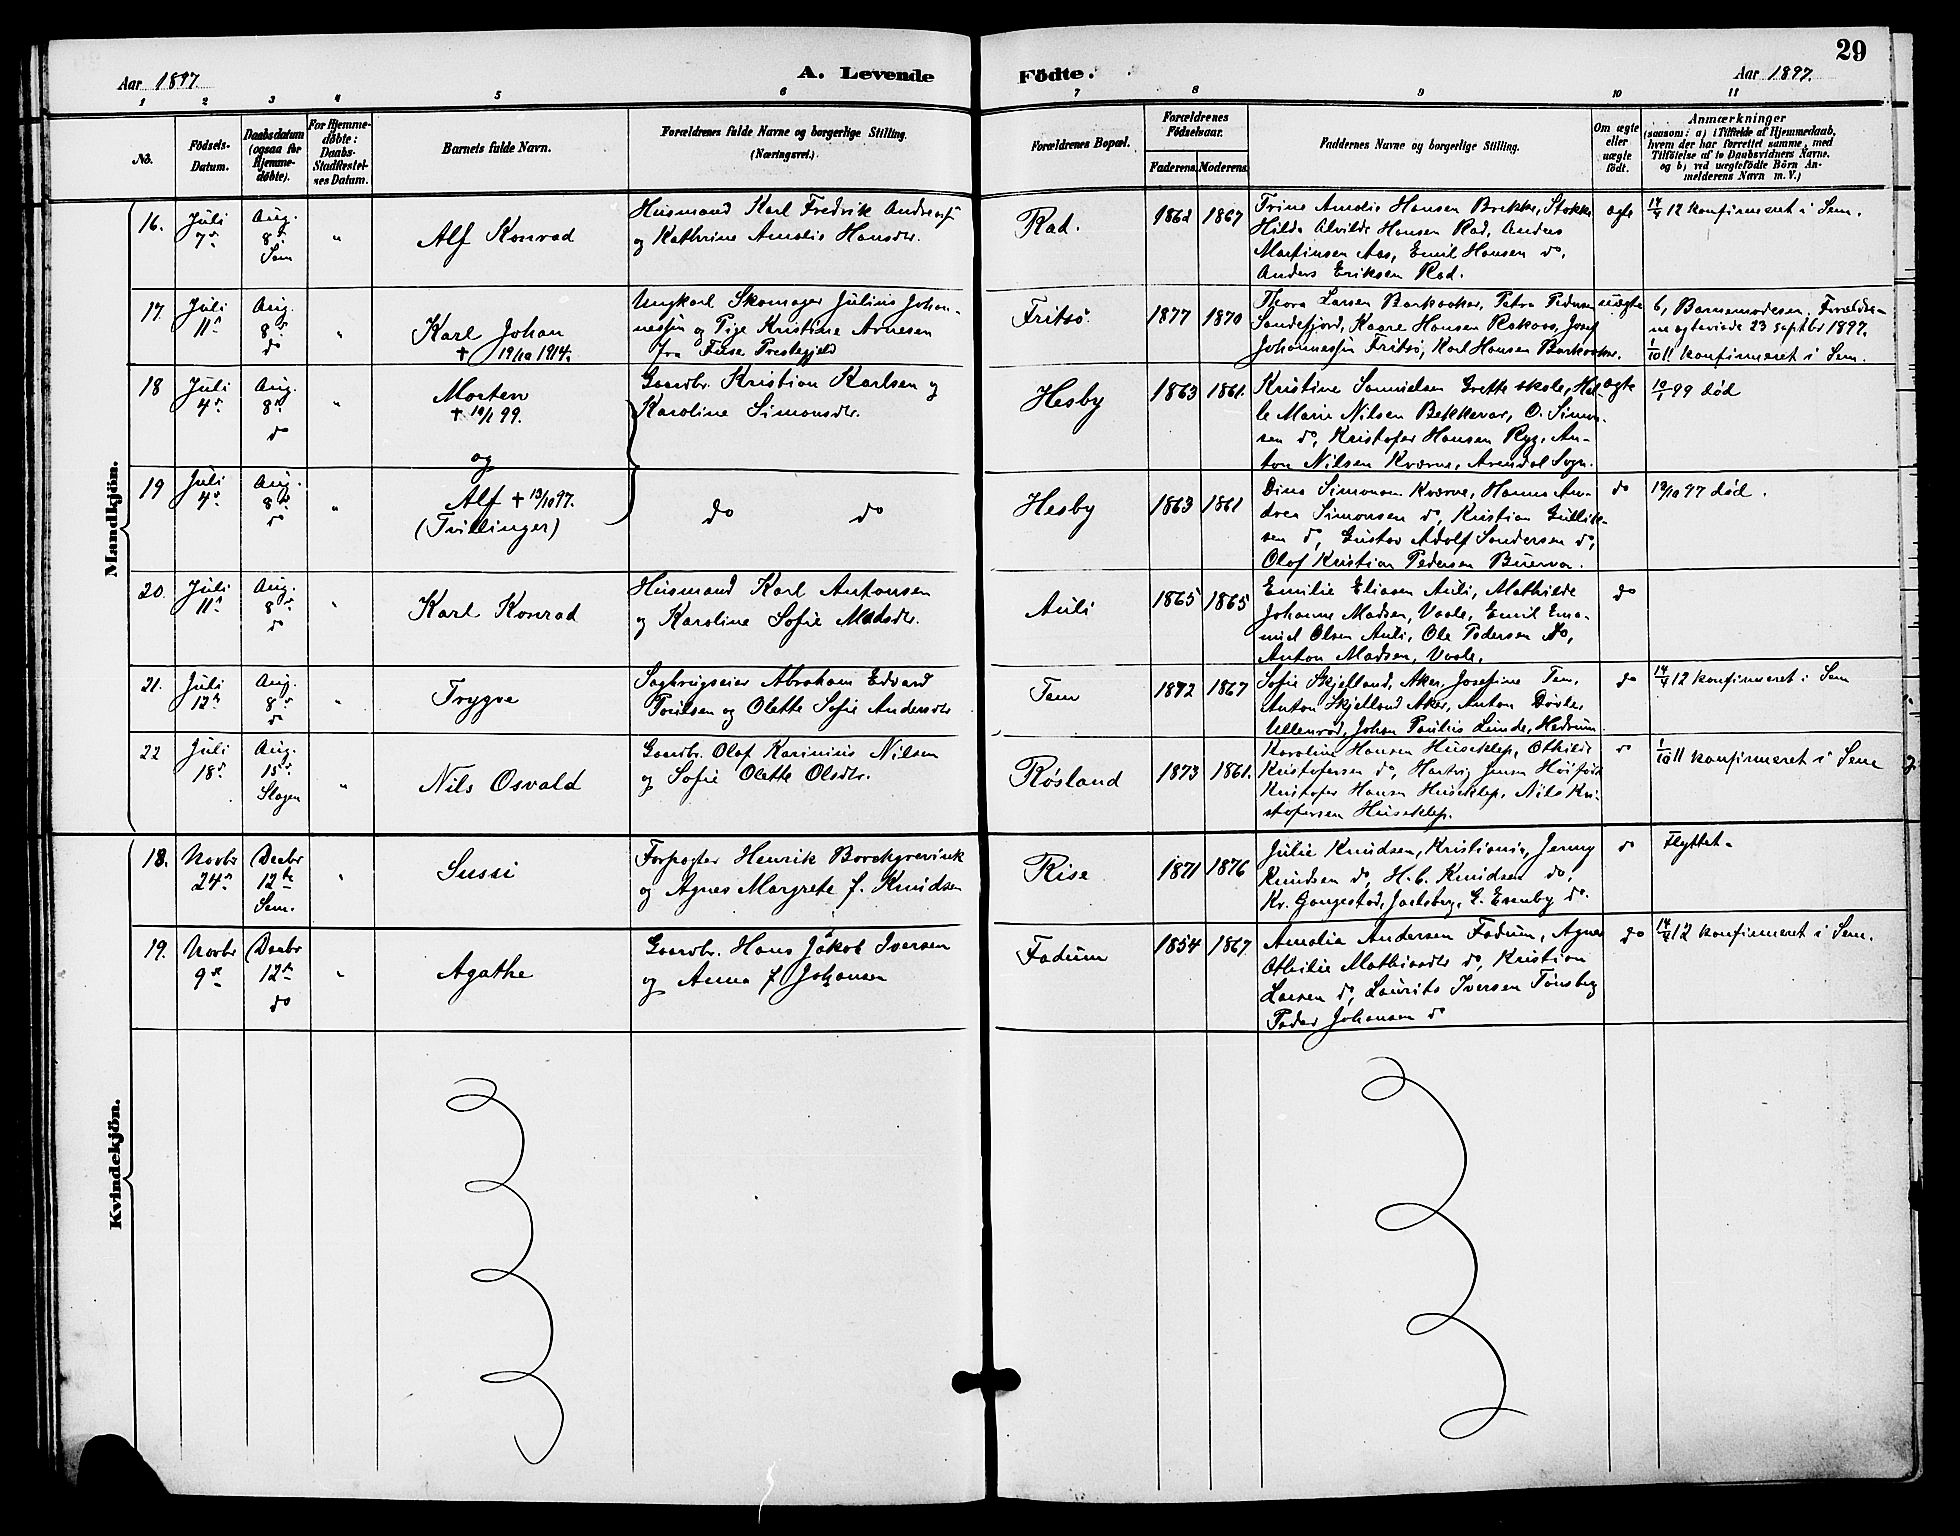 29
Aar 1897.
A. Levende
Födte.
Aar 1897.
1 2 3 4 5 6 7 8 9 10 11
No.
Födsels-
Datum.
Daabsdatum
(ogsaa for
Hjemme-
døbte).
For Hjemme-
døbte:
Daabs-
Stadfæstel-
ses Datum.
Barnets fulde Navn.
Forældrenes fulde Navne og borgerlige Stilling.
(Næringsvei.)
Forældrenes Bopæl.
Forældrenes
Fødselsaar.
Faderens. Moderens.
Faddernes Navne og borgerlige Stilling.
Om ægte
eller
uægte
født.
Anmærkninger
(saasom: a) i Tilfælde af Hjemmedaab,
hvem der har forrettet samme, med
Tilføielse af to Daabsvidners Navne.
og b) ved uægtefödte Börn An-
melderens Navn m. V.)
Mandkjön.
16.
Juli
7de
Aug.
8de
Sem
"
Alf Konrad
Husmand Karl Fredrik Andersen
og Kathrine Amalie Hansdtr.
Rad.
1862 1867
Trine Amalie Hansen Brekke, Stokke
Hilda Alvilde Hansen Rad, Anders
Martinsen Aas, Emil Hansen do,
Anders Eriksen Rad.
ægte
14/4 12 konfirmeret i Sem.
17.
Juli
11te
Aug.
8de
do
"
Karl Johan
† 19/10 1914.
Ungkarl Skomager Julius Johan-
nessen og Pige Kristine Arnesen
fra Fuse Prestegjeld
Fritsø.
1877 1870
Theora Larsen Barkaaker, Petra Pedersen
Sandefjord, Kaare Hansen Rakaas, Josef
Johannessen Fritsø, Karl Hansen Barkaaker.
uægte
b, Barnemoderen. Forældre-
ne egteviede 23 septbr 1897.
1/10 11 konfirmeret i Sem.
18
Juli
4de
Aug.
8de
do
"
Morten
† 10/1 99.
og
Gaardbr. Kristian Karlsen og
Karoline Simonsdtr.
Hesby
1863 1861.
Kristine Samuelsen Grette skole, Hel-
le Marie Nilsen Bekkevar, O. Simon-
sen do, Kristofer Hansen Ryg, An-
ton Nilsen Kværne, Arendal Sogn.
ægte
10/1 99 død
19
Juli
4de
Aug.
8de
do
"
Alf † 13/10 97.
(Tvillinger)
do do
Hesby
1863 1861
Dina Simonsen Kværne, Hanna An-
drea Simonsen do, Kristian Gullik-
sen do, Gustav Adolf Sandersen do,
Olaf Kristian Pedersen Buerva.
do
13/10 97 død.
20.
Juli
11te
Aug.
8de
do
"
Karl Konrad
Husmand Karl Antonsen
og Karoline Sofie Madsdtr.
Auli
1865 1865
Emilie Eliasen Auli, Mathilde
Johanne Madsen, Vaale, Emil Ema-
nuel Olsen Auli, Ole Pedersen do,
Anton Madsen, Vaale.
do
21.
Juli
12te
Aug.
8de
do
"
Trygve
Sagbrugseier Abraham Edvard
Poulsen og Olette Sofie Andersdtr
Tem
1872 1867
Sofie Skjelland, Aker, Josefine Tem,
Anton Skjelland Aker, Anton Døvle,
Ullenrød, Johan Paulius Lunde, Hedrum
do
14/4 12 konfirmeret i Sem
22
Juli
18de
Aug.
15de
Slagen
"
Nils Osvald
Gaardbr. Olaf Karinius Nilsen
og Sofie Olette Olsdtr.
Røsland
1873 1861.
Karoline Hansen Huseklep, Othilde
Kristofersen do, Hartvig Jensen
Kristofer Hansen Huseklep, Nils Kri-
stofersen Huseklep.
do
1/10 11 konfirmeret i Sem
Kvindekjön.
18.
Novbr
24de
Decbr
12te
Sem.
"
Sussi
Forpagter Henrik Borchgrevink
og Agnes Margrete f. Knudsen
Rise
1871 1876
Julie Knudsen, Kristiania, Jenny
Knudsen do, H. C. Knudsen do,
Kr. Gaugestad, Jarlsberg, G. Evenby do.
do
Flyttet.
19.
Novbr
9de
Decbr
12te
do
"
Agathe
Gaardbr. Hans Jakob Iversen
og Anna f. Johansen
Fadum
1854 1867.
Amalia Andersen Fadum, Agnes
Othilie Mathisdtr do, Kristian
Larsen do, Laurits Iversen Tønsberg
Peder Johansen do
do
14/4 12 konfirmeret i Sem.